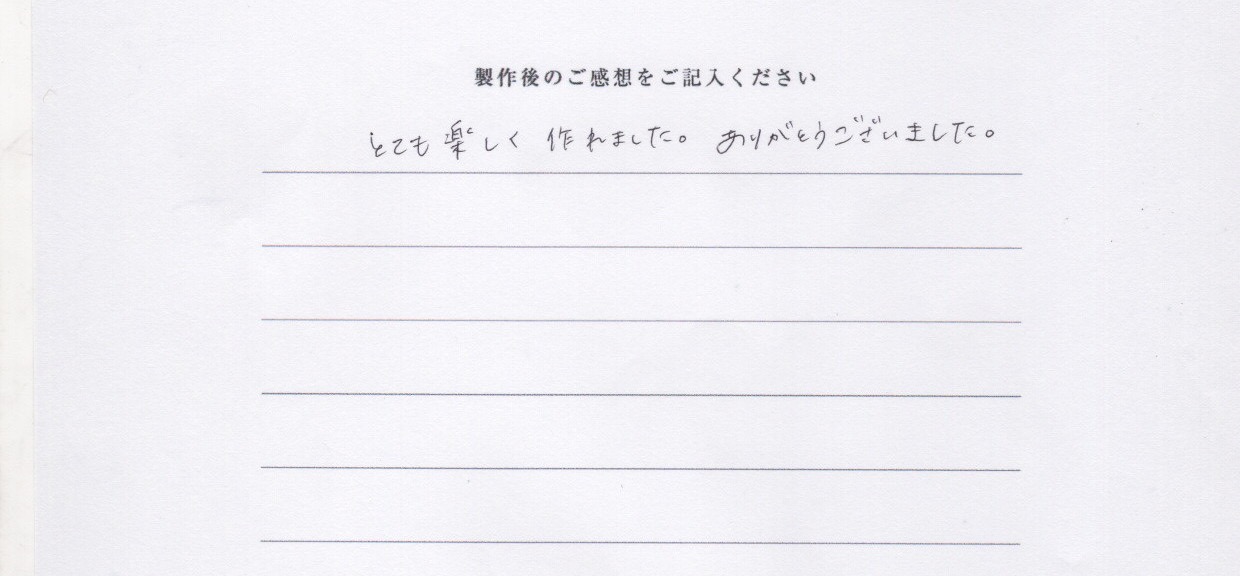 製作後のご感想をご記入ください
とても楽しく作れました。ありがとうございました。